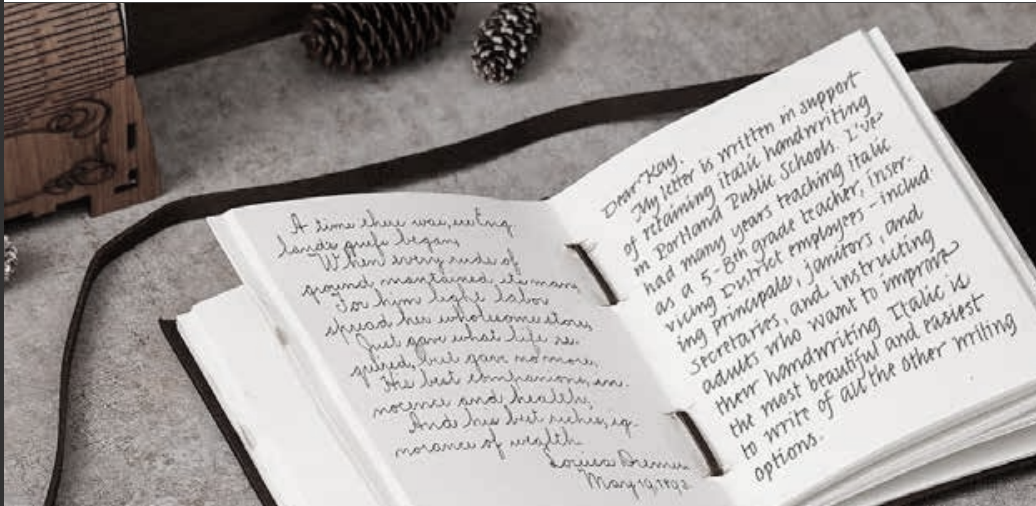 A time there was, ere Eng
lands griefs began,
When every of
ground mantained its man,
For him light labor
spread her wholesome stores
Just gave what life re-
quired, but gave no more,
His best companions, in-
nocence and health,
And his best riches, ig-
norance of wealth.
Louisa
May 19,
Dear Kay,
My letter is written in support
of retaining italic handwriting
in Portland Public Schools. I've
had many years teaching italic
as a 5-8th grade teacher, inser-
vicing District employees - includ-
ing principals, janitors, and
secretaries, and instructing
adults who want to improve
their handwriting Italic is
the most beautiful and easiest
to write of all the other writing
options.